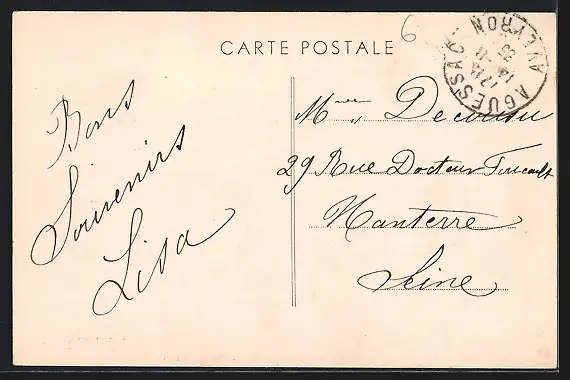 CARTE POSTALE
6
AGUESSAC
AVEYRON
Bons
Souvenirs
Lisa
29 Rue Docteur Foucault
Nanterre
Seine